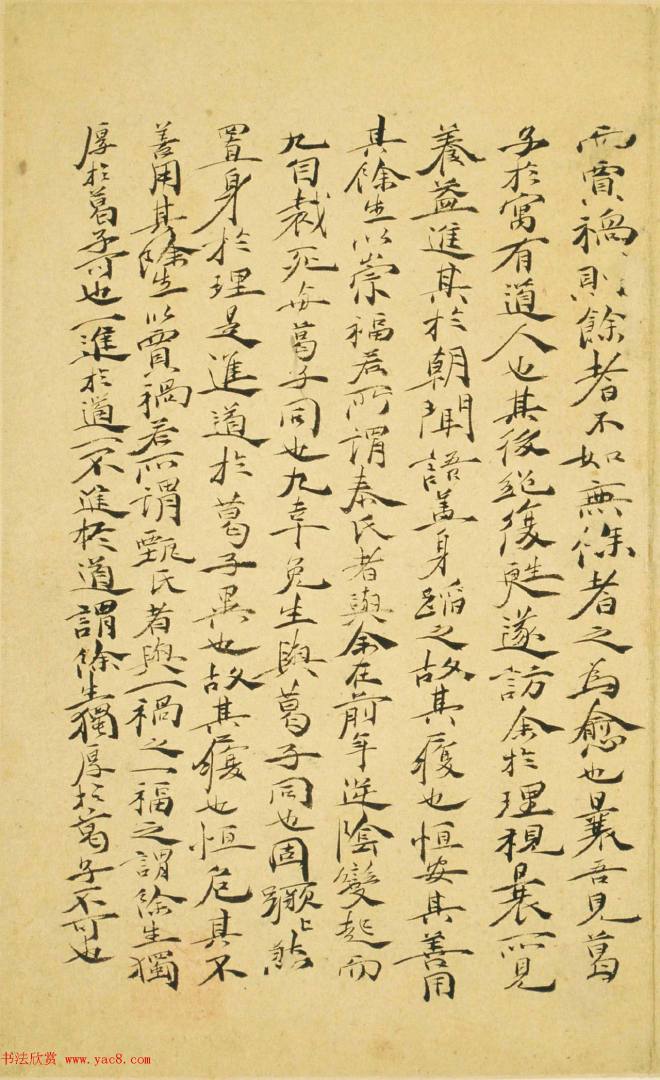 而賈禍則餘者不如無餘者之為愈也曩吾見葛
子於寓有道人也其後絕復甦遂訪余於理視曩所見
養益進其於朝聞語蓋身蹈之故其履也恒安其善用
其餘生以崇福若所謂秦氏者與余在前年逆陰變起而
九自裁死與葛子同也九幸免生與葛子同也固蹶蹶然
置身於理是進道於葛子異也故其履也恒危其不
善用其餘生以賈禍若所謂甄氏者與一禍之一福之謂餘生獨
厚於葛子可也一進於道一不進於道謂餘生獨厚於葛子不可也
书法欣赏 www.yac8.com